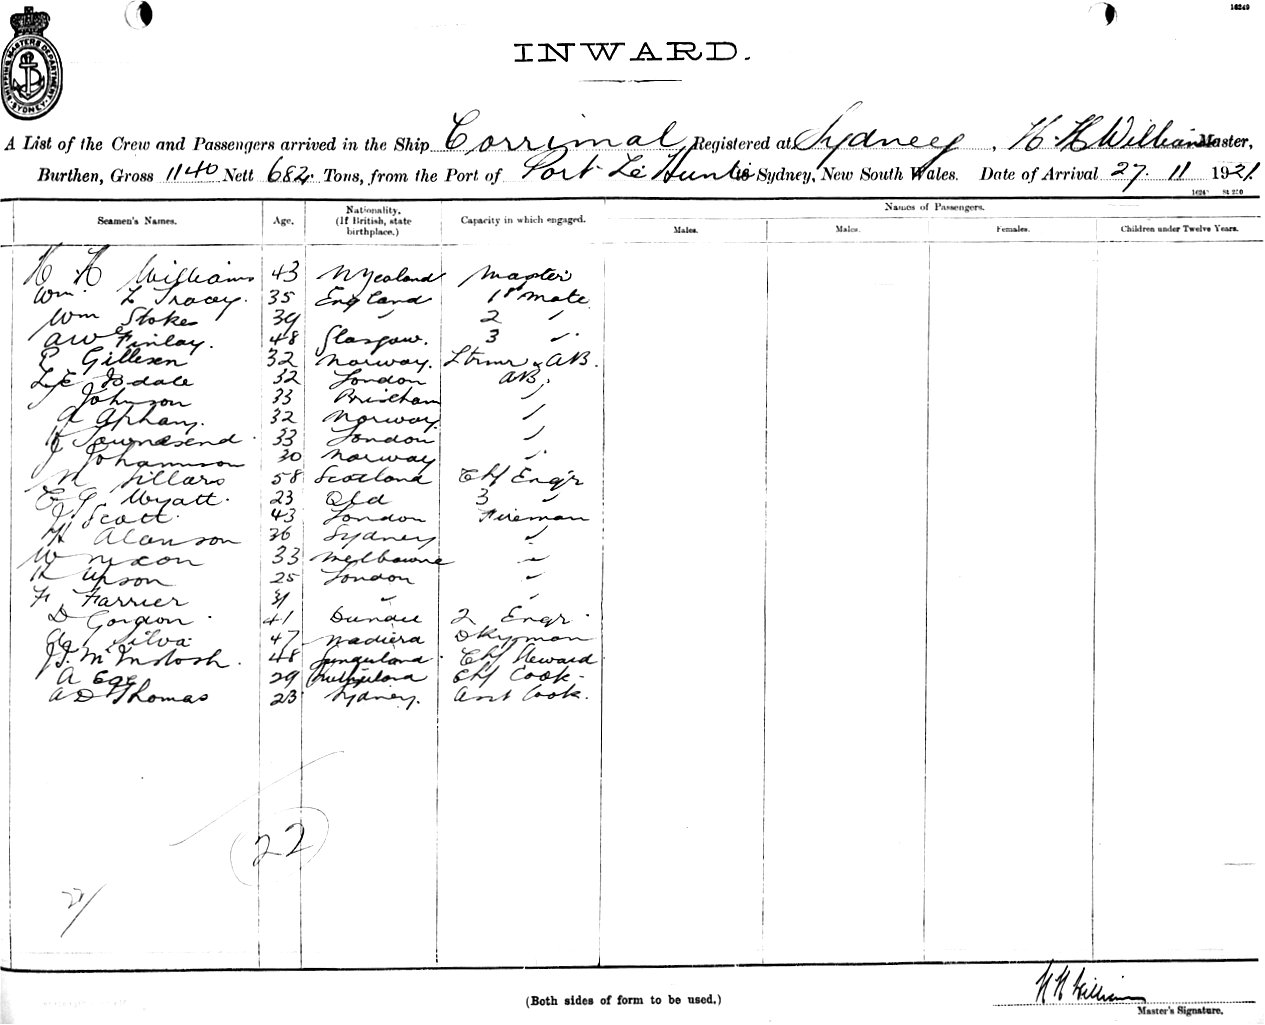 16249
SHIPPING MASTERS DEPARTMENT SYDNEY
INWARD.
A List of the Crew and Passengers arrived in the Ship Corrimal Registered at Sydney, H. H. Williams Master,
Burthen, Gross 1140 Nett 682 Tons, from the Port of Port Le Hunte to Sydney, New South Wales. Date of Arrival 27. 11 1921
Seamen's Names. Age. Nationality. (If British, state birthplace.) Capacity in which engaged. Names of Passengers.
Males. Males. Females. Children under Twelve Years.
H H Williams 43 N Zealand Master
Wm. L Tracey. 35 England 1st Mate
Wm Stokes 39 " 2 "
A W Finlay. 48 Glasgow. 3 "
E Gillesen 32 Norway. AB.
32 London AB.
J Johnson 33 "
32 Norway "
Townsend. 33 London "
J Johannson 30 Norway "
M Sillars 58 Scotland Chf Engr
C G Wyatt. 23 Qld 3 "
J. Scott. 43 London Fireman
H Alanson 36 Sydney "
W Nixon 33 Melbourne "
H Upson 25 London "
F. Farrier 31 " "
D Gordon. 41 Dundee 2 Engr.
Silva 47 Madiera Dkyman
J. J. McIntosh. 48 Sunderland Chf Steward
A 29 Chf Cook.
A D Thomas 23 Sydney. Asst Cook.
22
(Both sides of form to be used.)
H H Williams
Master's Signature.